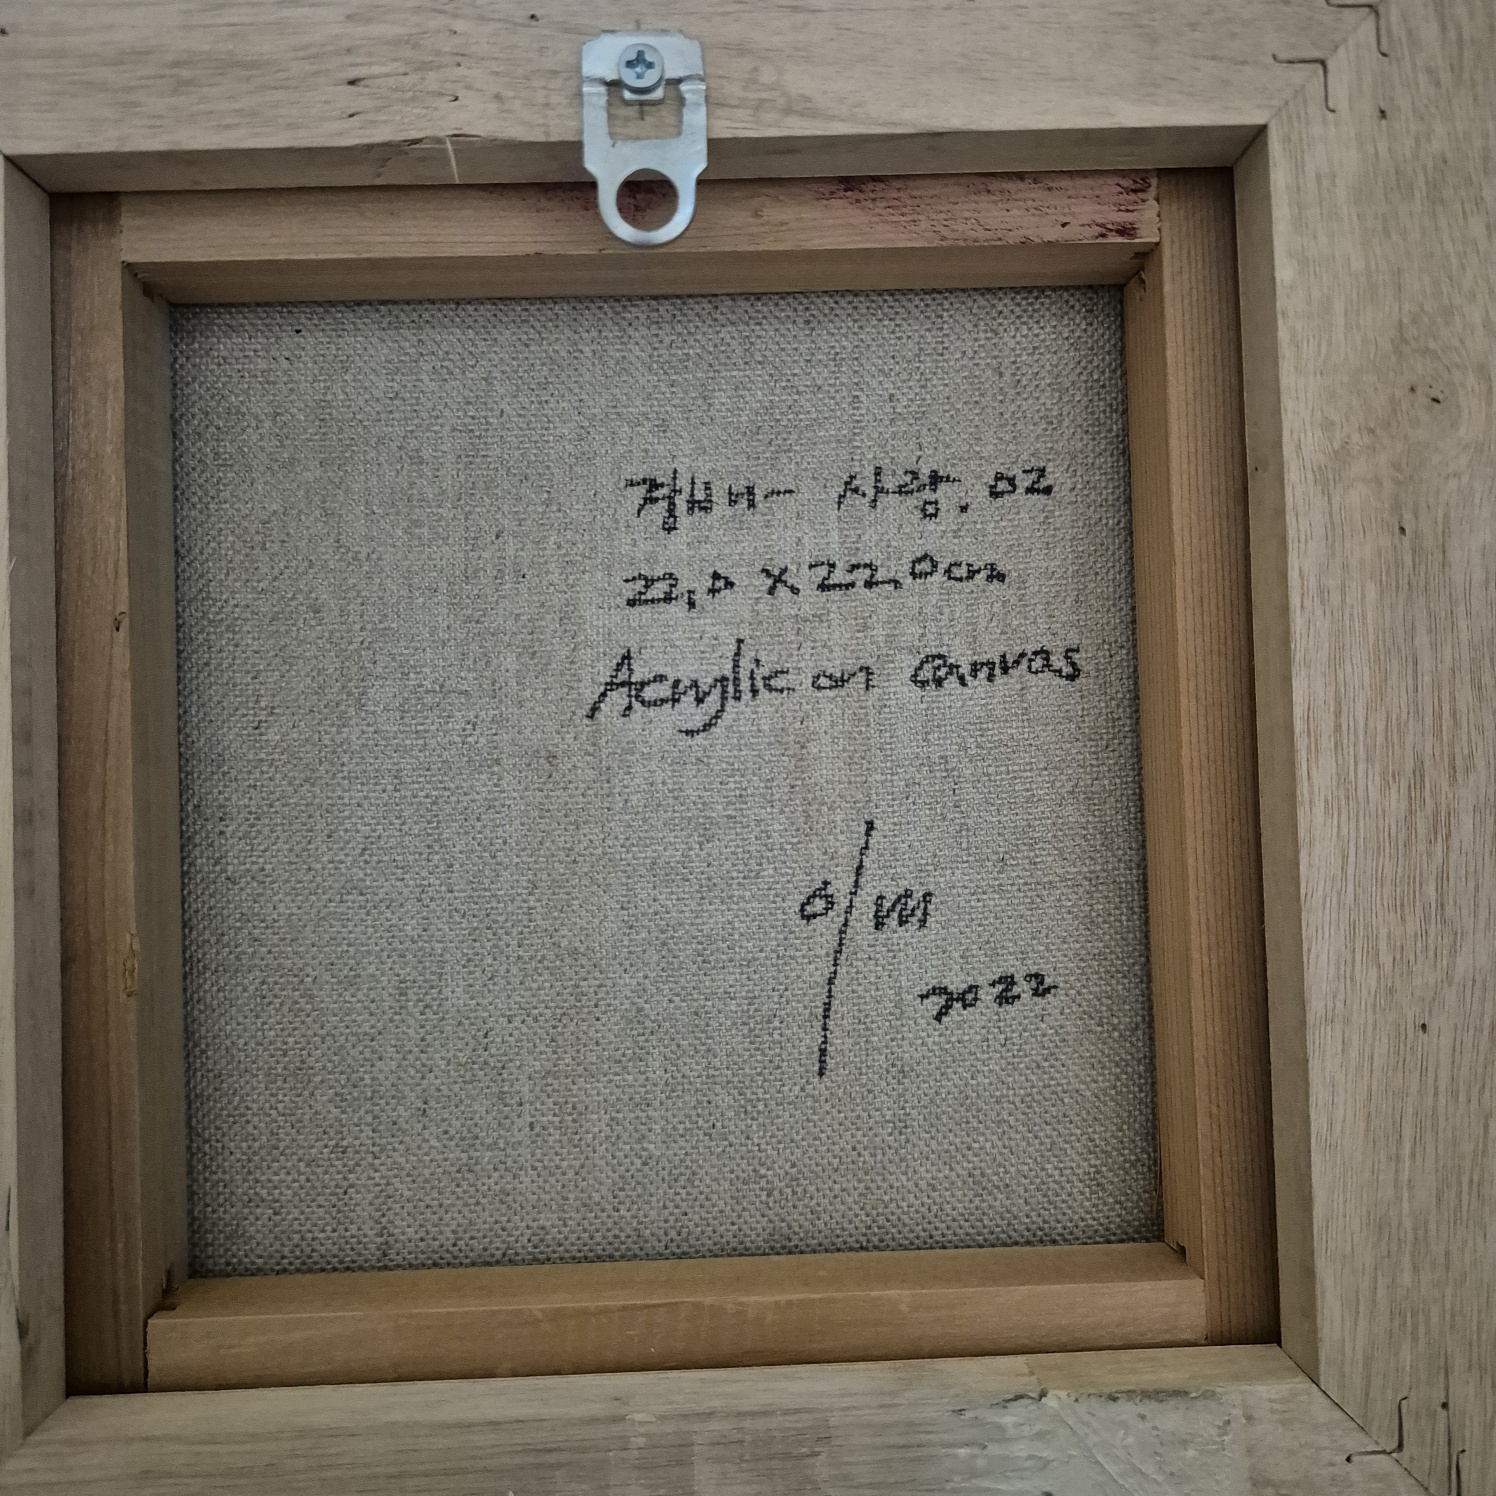 사랑. 02
22.0 x 22.0cm
Acrylic on Canvas
2022